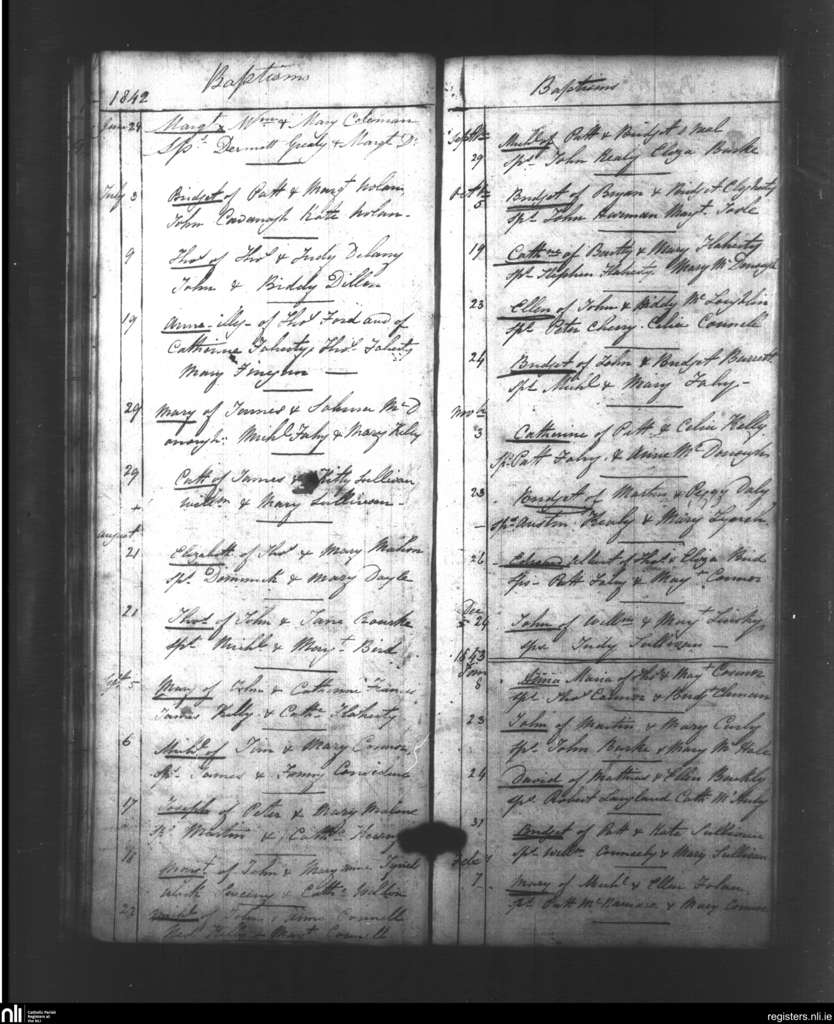 Baptisms
1842
June 29 Margt Wm & Mary Coleman
Sps. Dermott Grealy & Margt Do
July 3 Bridget of Patt & Margt Nolan
John Cavanagh Kate Nolan
9 Thos of Thos & Judy Delany
John & Biddy Dillon
19 Anne illy of Thos Ford and of
Catherine Faherty, Thos Faherty
Mary
29 Mary of James & McD
onough. Michl Fahy & Mary Kelly
29 Cath of James & Kitty Sullivan
Willm & Mary Sullivan
August
21 Elizabeth of Thos & Mary Mahon
Sps. Dominick & Mary Doyle
21 Thos of John & Jane Rourke
Sps. Michl & Margt Bird
Sept 5 Mary of John & Catherine Francis
James Kelly & Cathn Flaherty
6 Michl of Tim & Mary Connor
Sps. James & Fanny Considine
17 Joseph of Peter & Mary Malone
Sps. Martin & Cathn
Margt of John & Mary Anne
Sweeny & Cathn
23 of John & Anne Connell
Kelly & Margt Connell
Baptisms
Septbr Michl of Patt & Bridget
29 Sps. John Healy Eliza Burke
Octbr
5 Bridget of Bryan & Bridget
Sps. John Margt Toole
19 Cathne of Bartly & Mary Flaherty
Sps. Stephen Flaherty Mary McDonough
23 Ellen of John & Biddy McLoughlin
Sps. Peter Cherry. Celia Connell
24 Bridget of John & Bridget Barrett
Sps. Michl & Mary Fahy
Novbr
3 Catherine of Patt & Celia Kelly
Sps. Patt Fahy & Anne McDonough
23 Bridget of Martin & Peggy Daly
Sps. Austin Healy & Mary Lynch
26 Edward of Thos & Eliza Bird
Sps. Patt Fahy & Margt Connor
Dec
24 John of Willm & Margt
Sps. Judy Sullivan
1843
Jan
8 Maria of Thos & Margt Connor
Sps. Thos Connor & Bridgt
23 John of Martin & Mary Curly
Sps. John Burke & Mary McHale
24 David of Mathias & Ellen Buckly
Sps. Robert Langland Cath
31 Bridget of Patt & Kate Sullivan
Sps. Willm & Mary Sullivan
Feb
7 Mary of Michl & Ellen Folan
Sps. Patt & Mary Connor
nli Catholic Parish
Registers at
the NLI
registers.nli.ie